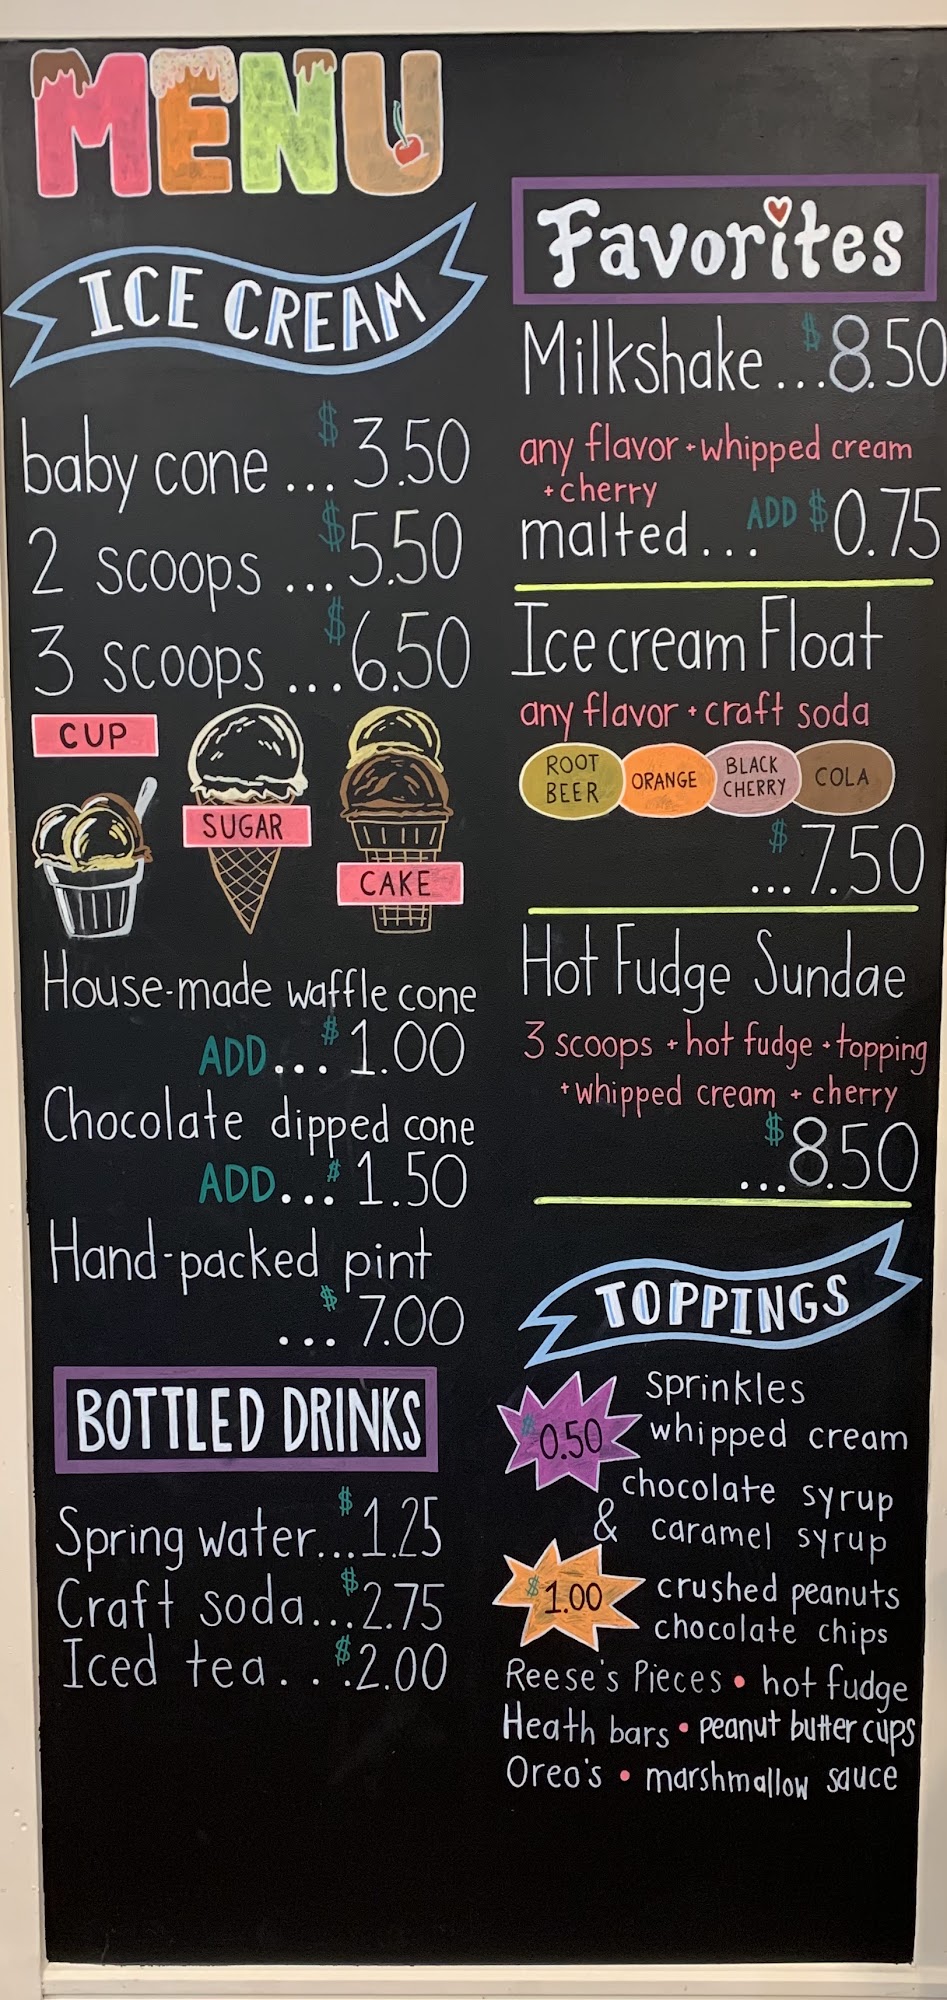 MENU
ICE CREAM
baby cone ... $3.50
2 scoops ... $5.50
3 scoops ... $6.50
CUP
SUGAR
CAKE
House-made waffle cone
ADD... $1.00
Chocolate dipped cone
ADD... $1.50
Hand-packed pint
... $7.00
BOTTLED DRINKS
Spring water... $1.25
Craft soda... $2.75
Iced tea... $2.00
Favorites
Milkshake ... $8.50
any flavor + whipped cream
+ cherry
malted... ADD $0.75
Ice cream Float
any flavor + craft soda
ROOT BEER ORANGE BLACK CHERRY COLA
... $7.50
Hot Fudge Sundae
3 scoops + hot fudge + topping
+ whipped cream + cherry
... $8.50
TOPPINGS
$0.50
Sprinkles
whipped cream
chocolate syrup
& caramel syrup
$1.00
crushed peanuts
chocolate chips
Reese's Pieces • hot fudge
Heath bars • peanut butter cups
Oreo's • marshmallow sauce